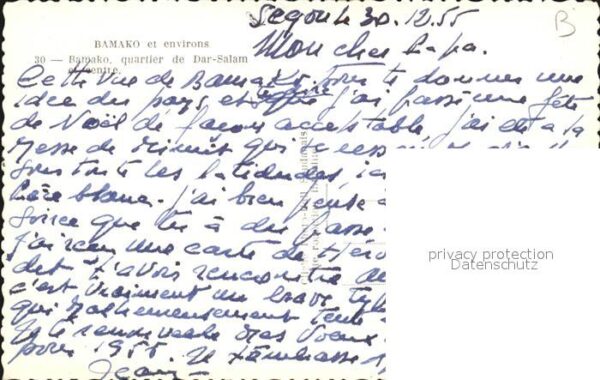 Segou le 30.12.55
B
BAMAKO et environs
30 — Bamako, quartier de Dar-Salam
et centre.
Mon cher Papa.
Cette vue de Bamako pour te donner une
idée du pays, et j'ai passé une fête
de Noël de façon acceptable, j'ai été à la
Messe de Minuit qui
sous toutes les latitudes,
blanc. j'ai bien pensé
soirée que tu a du passer
j'ai reçu une carte de
dit t'avoir rencontré
c'est vraiment un brave type
qui Malheureusement
Je te renouvelle mes Voeux
pour 1955. Je t'embrasse
Jean
privacy protection
Datenschutz